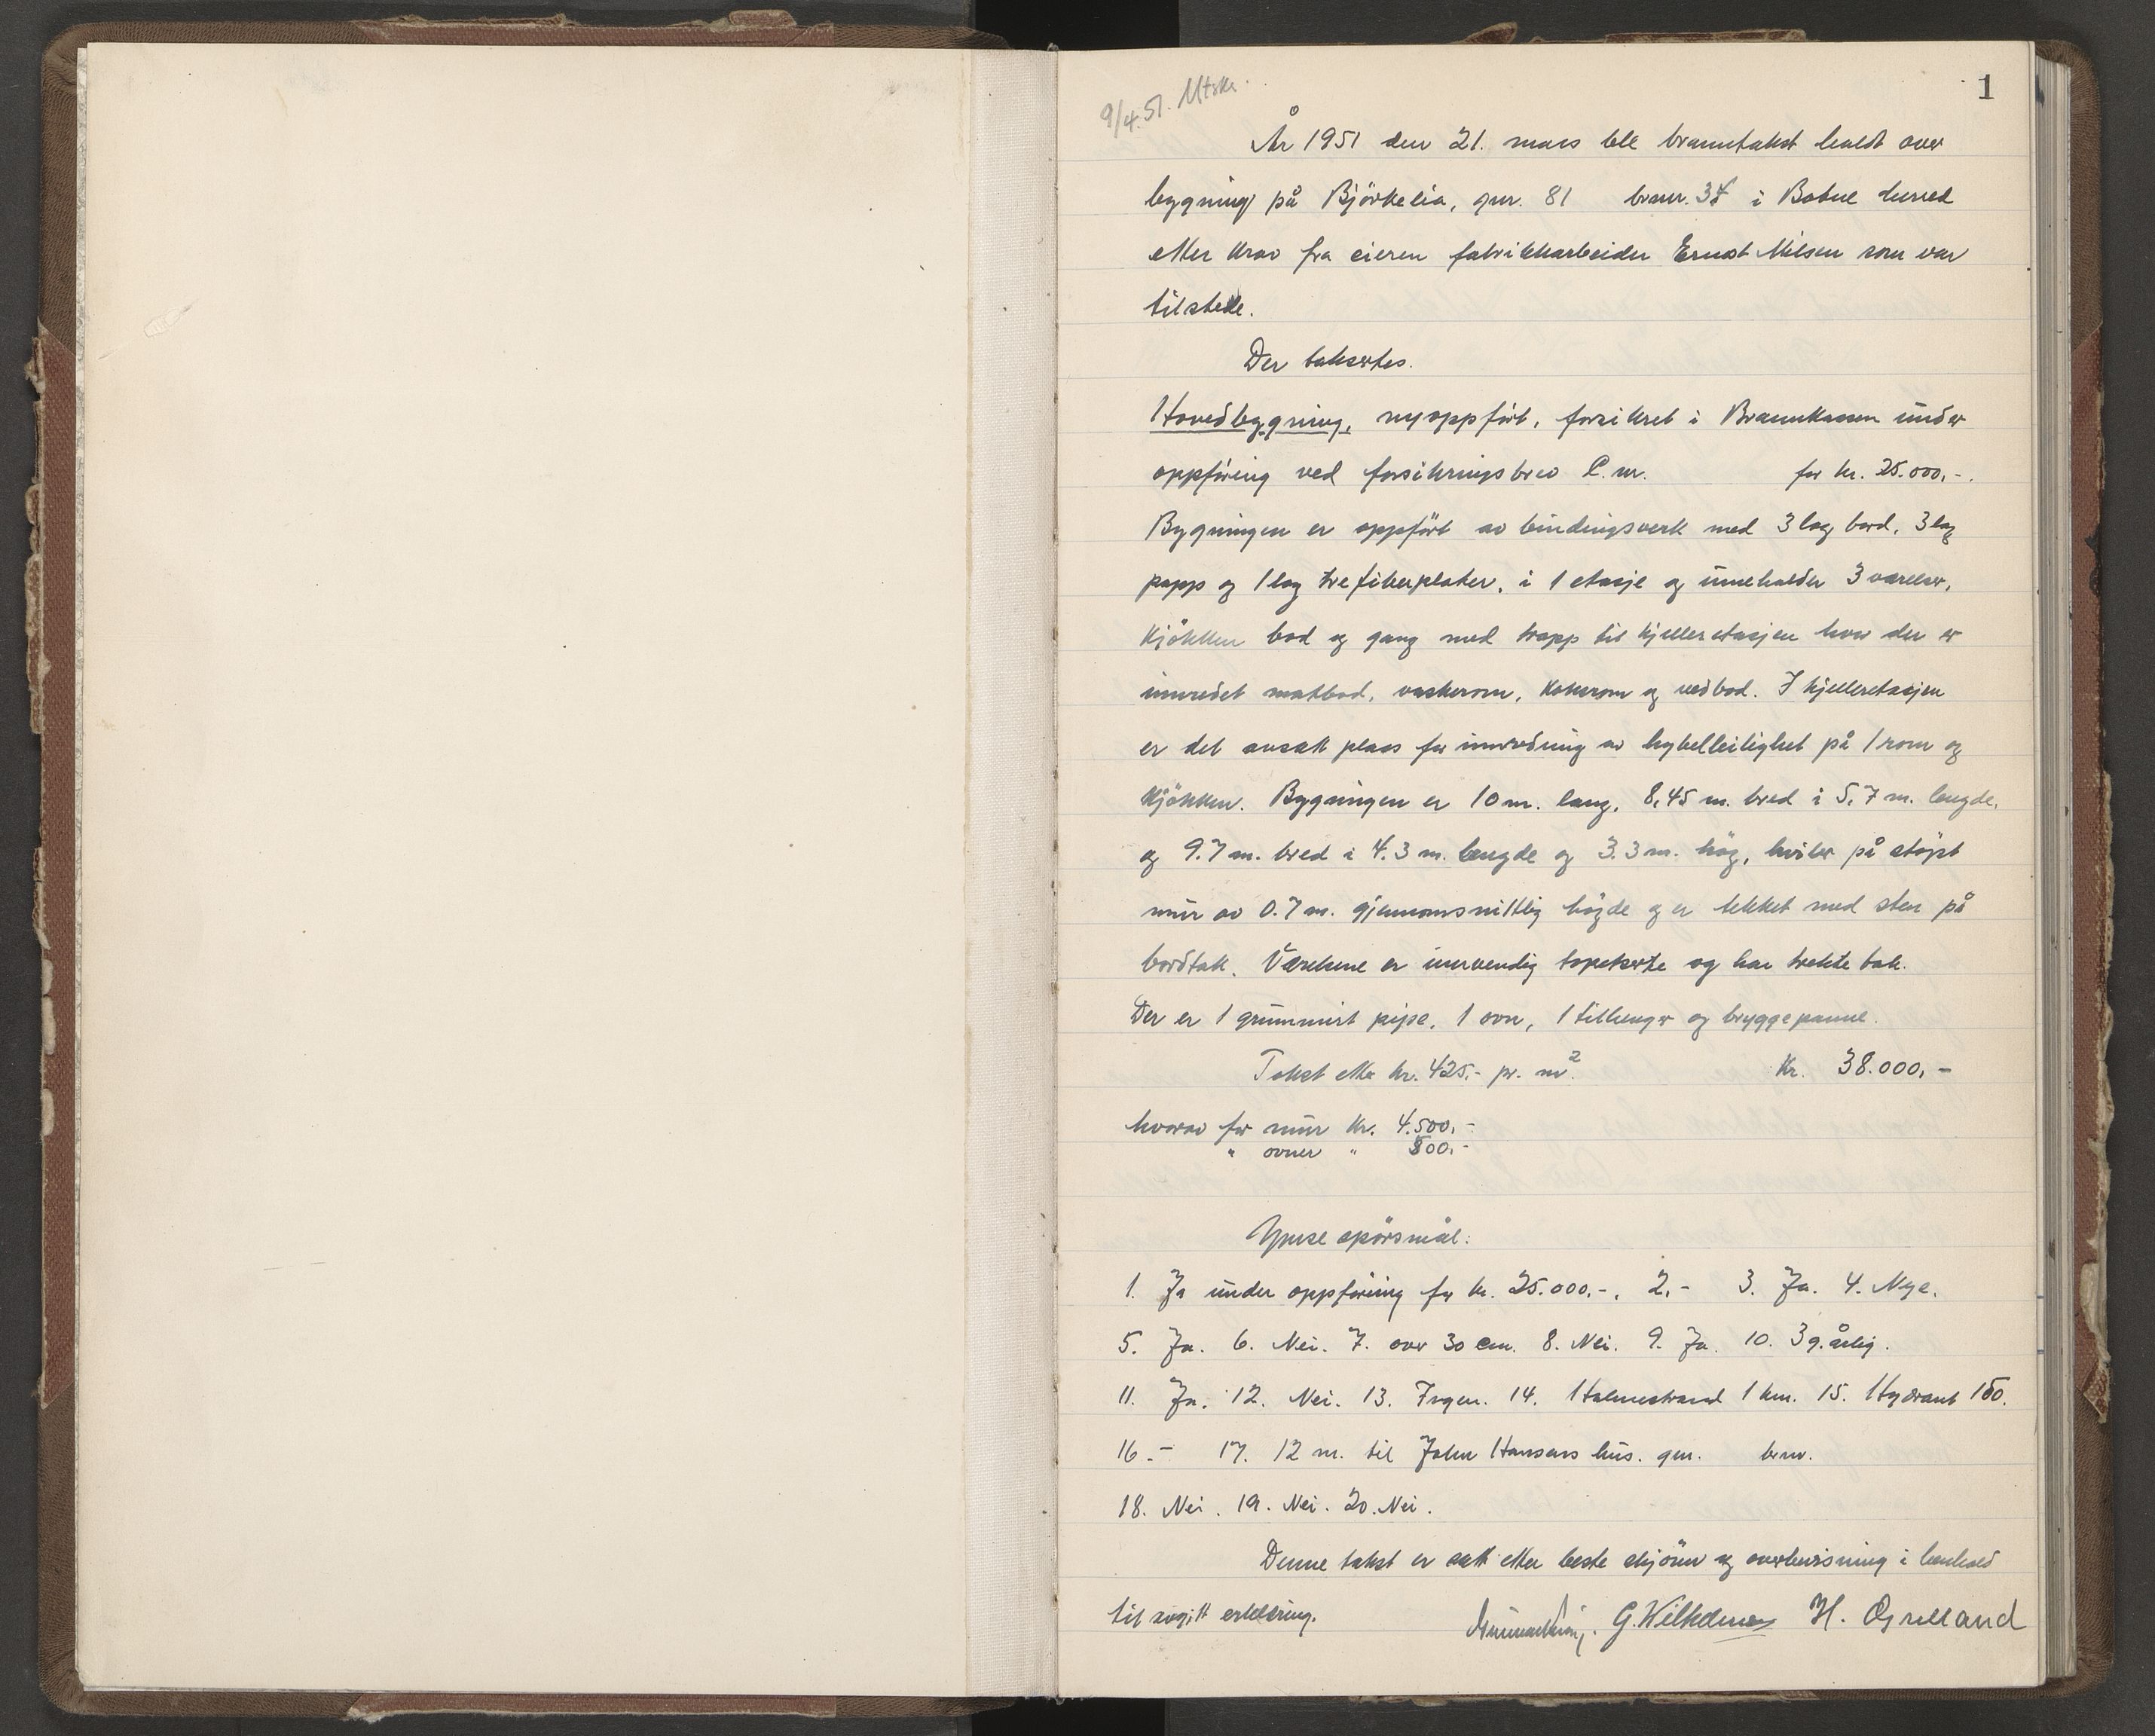 1
9/4.51. Utskr.
År 1951 den 21. mars ble branntakst holdt over
bygning på Björkelia, gnr. 81 bnr. 38 i Botne herred
etter krav fra eieren fabrikkarbeider Ernst Nilsen som var
tilstede.
Der taksertes.
Hovedbygning, nyoppfört, forsikret i Brannkassen under
oppföring ved forsikringsbrev C. nr. for kr. 25.000,-.
Bygningen er oppfört av bindingsverk med 3 lag bord, 3 lag
papp og 1 lag trefiberplater, i 1 etasje og inneholder 3 værelser,
kjökken bad og gang med trapp til kjelleretasjen hvor der er
innredet matbod, vaskerom, kokerom og vedbod. I kjelleretasjen
er det avsatt plass for innredning av hybelleilighet på 1 rom og
kjökken. Bygningen er 10 m. lang, 8,45 m. bred i 5,7 m. lengde,
og 9.7 m. bred i 4.3 m. lengde og 3.3 m. hög, hviler på stöpt
mur av 0.7 m. gjennomsnittlig höyde og er tekket med sten på
bordtak. Værelsene er innvendig tapetserte og har trekte tak.
Der er 1 grunnmurt pipe, 1 ovn, 1 tillenger og bryggepanne.
Takst etter kr. 425,- pr. m². Kr. 38.000,-
hvorav for mur kr. 4.500,-
" ovner " 500,-
Ymse spörsmål:
1. Ja under oppföring for kr. 25.000.-, 2,- 3. Ja. 4. Nye.
5. Ja. 6. Nei. 7. over 30 cm. 8. Nei. 9. Ja. 10. 3 g. årlig.
11. Ja. 12. Nei. 13. Ingen. 14. Holmestrand 1 km. 15. Hydrant 150.
16.- 17. 12 m. til John Hansens hus. gnr. bnr.
18. Nei. 19. Nei. 20. Nei.
Denne takst er satt etter beste skjönn og overbevisning i henhold
til avgitt erklæring.
G. Wilhelmsen H. Grelland